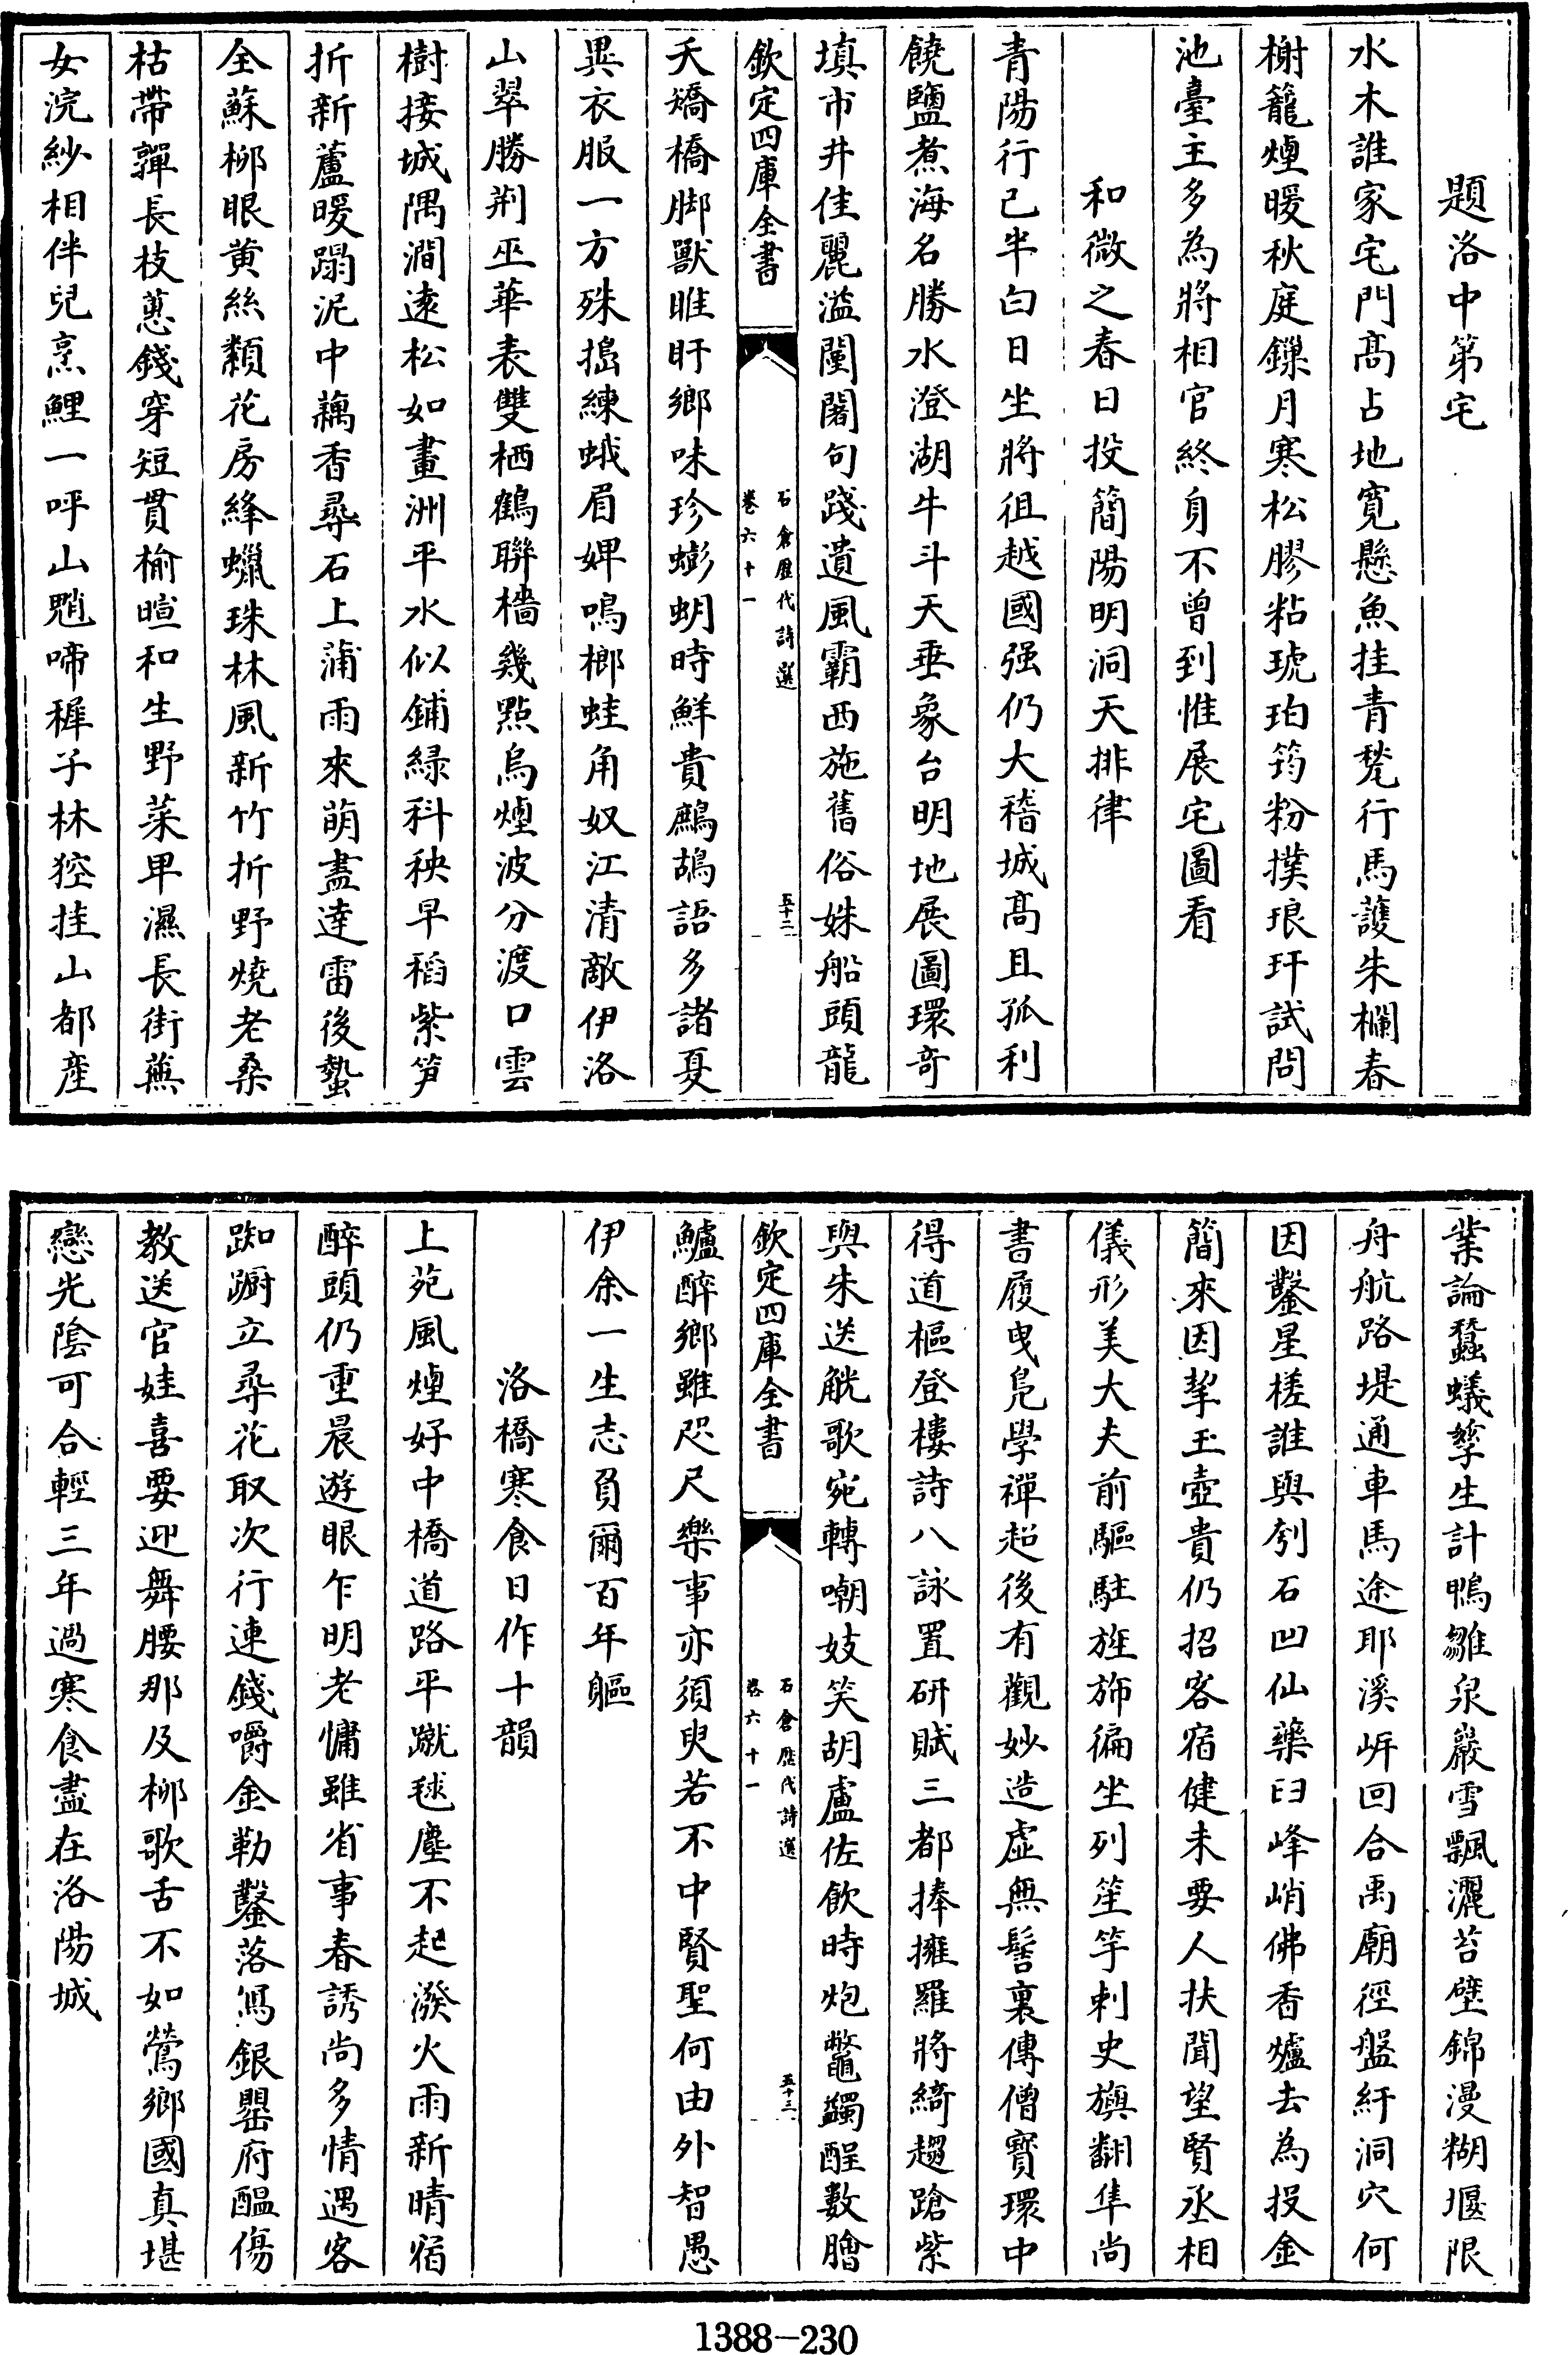 題洛中第宅
水木誰家宅門髙占地寛懸魚挂青甃行馬護朱欄春
榭籠煙暖秋庭鏁月寒松膠粘琥珀筠粉撲琅玕試問
池臺主多為將相官終身不曾到惟展宅圖看
和微之春日投簡陽明洞天排律
青陽行已半白日坐將徂越國强仍大稽城髙且孤利
饒鹽煮海名勝水澄湖牛斗天垂象台明地展圖環奇
填市井佳麗溢闉闍句踐遺風霸西施舊俗姝船頭龍
欽定四庫全書
石倉歷代詩選
卷六十一
五十二
夭矯橋脚獸睢盱鄉味珍蟛蚏時鮮貴鷓鴣語多諸夏
異衣服一方殊搗練蛾眉婢鳴榔蛙角奴江清敵伊洛
山翠勝荆巫華表雙栖鶴聯檣幾點烏煙波分渡口雲
樹接城隅澗逺松如畫洲平水似鋪緑科秧早稻紫笋
折新蘆暖蹋泥中藕香尋石上蒲雨來萌盡達雷後蟄
全蘇栁眼黄絲纇花房絳蠟珠林風新竹折野燒老桑
枯帶亸長枝蕙錢穿短貫榆暄和生野菜卑濕長街蕪
女浣紗相伴兒烹鯉一呼山魈啼稚子林狖挂山都産
業論蠶蟻孳生計鴨雛泉巖雪飄灑苔壁錦漫糊堰限
舟航路堤通車馬途耶溪岸回合禹廟徑盤紆洞穴何
因鑿星槎誰與刳石凹仙藥臼峰峭佛香爐去為投金
簡來因挈玉壺貴仍招客宿健未要人扶聞望賢丞相
儀形美大夫前驅駐旌斾徧坐列笙竽刺史旟翻隼尚
書履曳鳧學禪超後有觀妙造虚無髻裏傳僧寳環中
得道樞登樓詩八詠置研賦三都捧擁羅將綺趨蹌紫
與朱送觥歌宛轉嘲妓笑胡盧佐飲時炮鼈蠲酲數膾
欽定四庫全書
石倉歷代詩選
卷六十一
五十三
鱸醉鄉雖咫尺樂事亦須臾若不中賢聖何由外智愚
伊余一生志負爾百年軀
洛橋寒食日作十韻
上苑風煙好中橋道路平蹴毬塵不起潑火雨新晴宿
醉頭仍重晨遊眼乍明老慵雖省事春誘尚多情遇客
踟蹰立尋花取次行連錢嚼金勒鑿落寫銀罌府醖傷
教送官娃喜要迎舞腰那及栁歌舌不如鶯鄉國真堪
戀光陰可合輕三年過寒食盡在洛陽城
1388-230